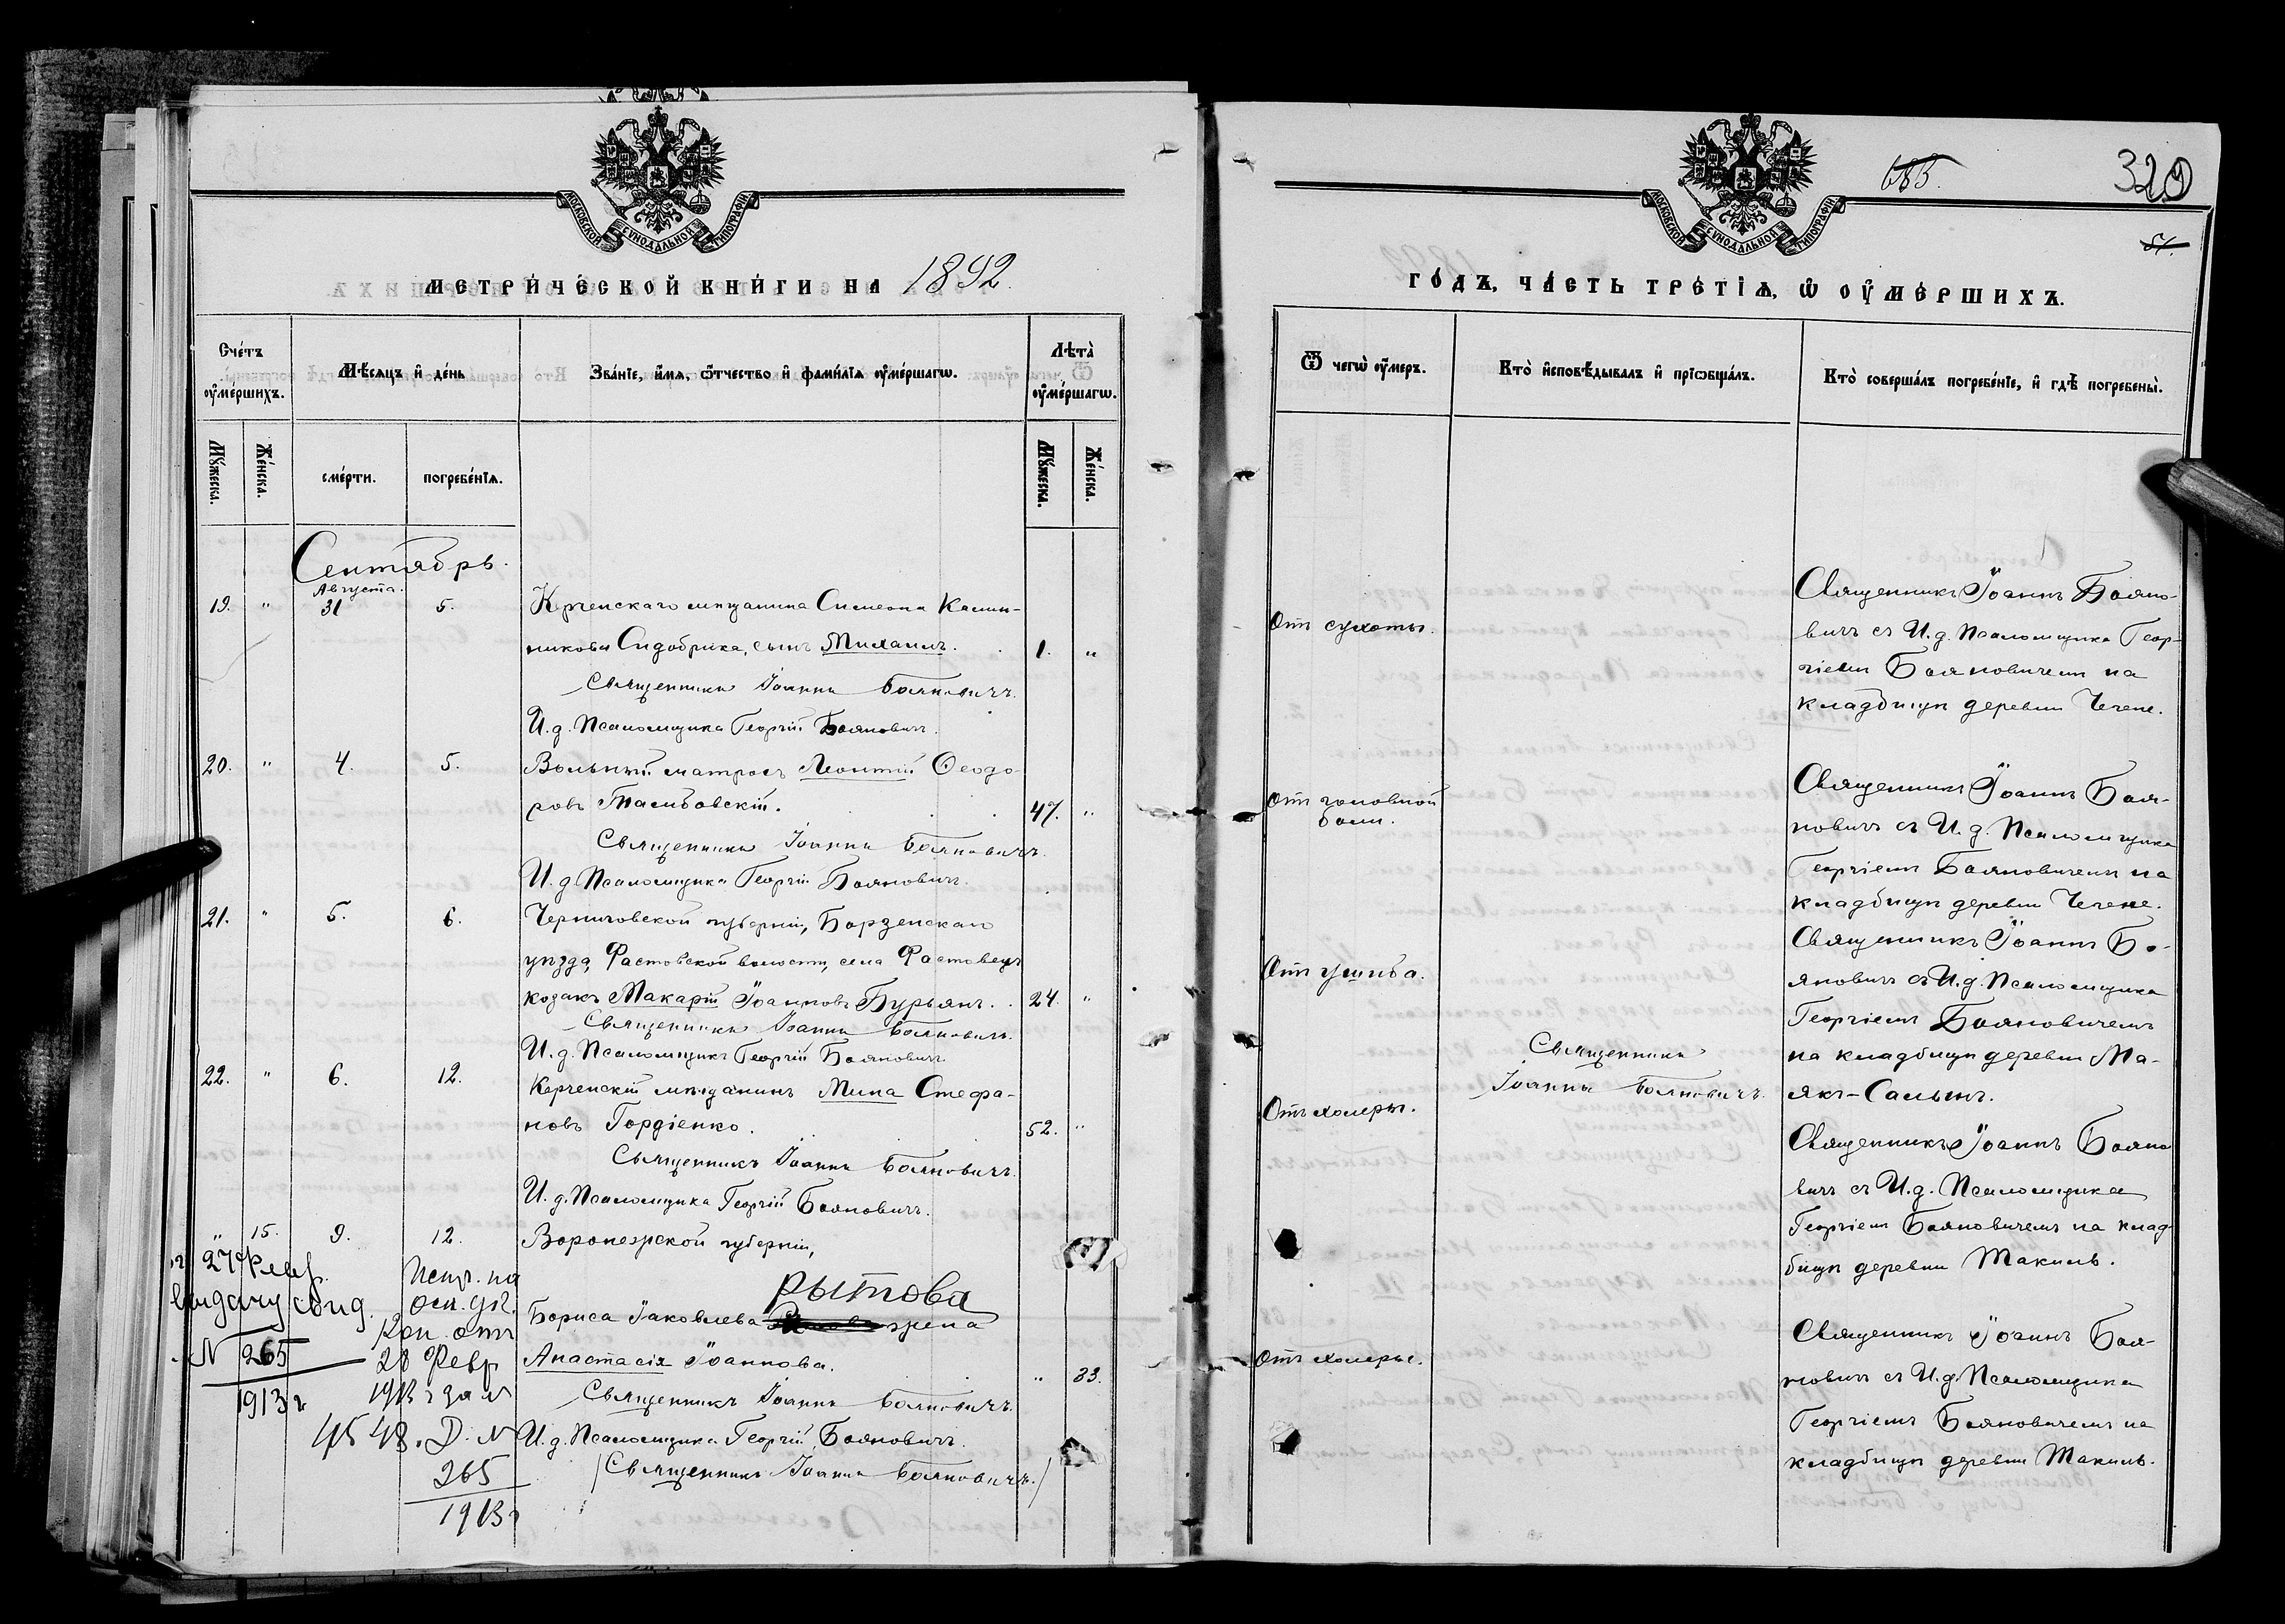 МОСКОВСКОЙ СѴНОДАЛЬНОЙ ТИПОГРАФІИ
МЕТРИ́ЧЕСКОЙ КНИ́ГИ НА 1892.
Сче́тъ оу҆ме́ршихъ.
Мѣ́сяцъ и҆ де́нь
Зва́нїе, и҆́мя, ѻ҆́тчество и҆ фами́лїя оу҆ме́ршагѡ.
Лѣта̀ оу҆ме́ршагѡ.
Мꙋ́жеска.
Же́нска.
сме́рти.
погребе́нїя.
Мꙋ́жеска.
Же́нска.
Сентябрь.
Августа.
19. " 31 5. Керченскаго мѣщанина Симеона Калин-
никова Сидобрика, сынъ Михаилъ. 1. "
Священникъ Іоаннъ Бояновичъ.
И. д. Псаломщика Георгій Бояновичъ.
20. " 4. 5. Вольный матросъ Леонтій Ѳеодо-
ровъ Тамбовскій. 47. "
Священникъ Іоаннъ Бояновичъ.
И. д. Псаломщика Георгій Бояновичъ.
21. " 5. 6. Черниговской губерніи, Борзенскаго
уѣзда, Фастовской волости, села Фастовецъ
козакъ Макарій Іоанновъ Бурьянъ. 24. "
Священникъ Іоаннъ Бояновичъ.
И. д. Псаломщикъ Георгій Бояновичъ.
22. " 6. 12. Керченскій мѣщанинъ Мина Стефа-
новъ Гордіенко. 52. "
Священникъ Іоаннъ Бояновичъ.
И. д. Псаломщика Георгій Бояновичъ.
" 15. 9. 12. Воронежской губерніи,
Рытова
Бориса Іаковлева жена
Анастасія Іоаннова. " 33.
Священникъ Іоаннъ Бояновичъ.
И. д. Псаломщика Георгій Бояновичъ.
(Священникъ Іоаннъ Бояновичъ.)
27 Февр.
N 265
1913 г
Испр. на
осн.
Кон. отъ
28 Февр
1913 г за N
4548. Д. N
265
1913 г
МОСКОВСКОЙ СѴНОДАЛЬНОЙ ТИПОГРАФІИ
683.
329
ГО́ДЪ, ЧА́СТЬ ТРЕ́ТЇѦ, Ѡ҆ ОУ҆МЕ́РШИХЪ.
Ѿ чегѡ̀ оу҆́мер.
Кто̀ и҆сповѣ́дывалъ и҆ прїѡбща́лъ.
Кто̀ соверша́лъ погребе́нїе, и҆ гдѣ̀ погребены̀.
Отъ сухоты.
Священникъ Іоаннъ Бояно-
вичъ съ И. д. Псаломщика Геор-
гіемъ Бояновичемъ на
кладбищѣ деревни Чечене.
Отъ головной
боли.
Священникъ Іоаннъ Боя-
новичъ съ И. д. Псаломщика
Георгіемъ Бояновичемъ на
кладбищѣ деревни Чечене.
Отъ ушиба.
Священникъ Іоаннъ Бо-
яновичъ съ И. д. Псаломщика
Георгіемъ Бояновичемъ
на кладбищѣ деревни Ма-
якъ-Салынъ.
Отъ холеры.
Священникъ
Іоаннъ Бояновичъ.
Священникъ Іоаннъ Бояно
вичъ съ И. д. Псаломщика
Георгіемъ Бояновичемъ на клад-
бищѣ деревни Такиль.
Отъ холеры.
Священникъ Іоаннъ Боя-
новичъ съ И. д. Псаломщика
Георгіемъ Бояновичемъ на
кладбищѣ деревни Такиль.